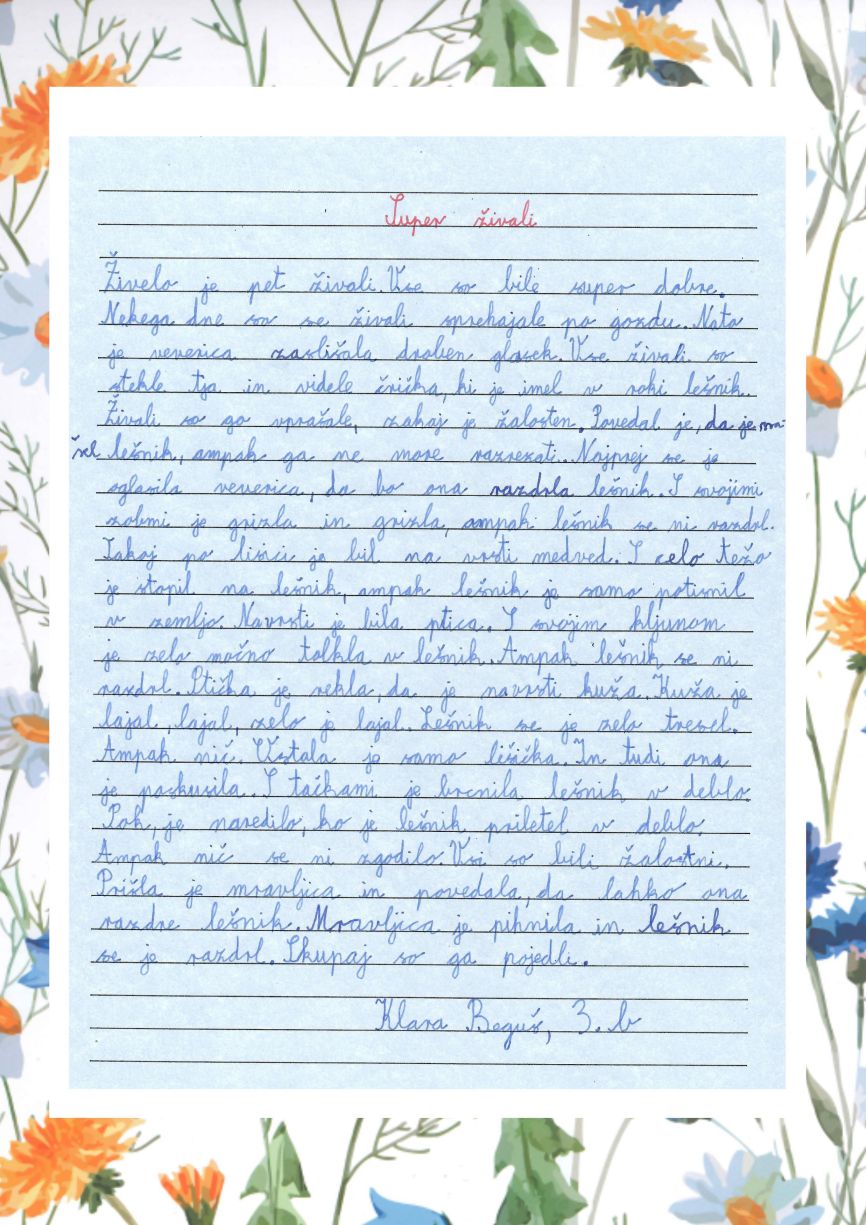 Super živali
Živelo je pet živali. Vse so bile super dobre.
Nekega dne so se živali sprehajale po gozdu. Nato
je veverica zaslišala droben glasek. Vse živali so
stekle tja in videle črička, ki je imel v roki lešnik.
Živali so go vprašale, zakaj je žalosten. Povedal je, da je na-
šel lešnik, ampak ga ne more razrezati. Najprej se je
oglasila veverica, da bo ona razdrla lešnik. S svojimi
zobmi je grizla in grizla, ampak lešnik se ni razdrl.
Takoj po lisici je bil na vrsti medved. S celo težo
je stopil na lešnik, ampak lešnik je samo potisnil
v zemljo. Navrsti je bila ptica. S svojim kljunom
je zelo močno tolkla v lešnik. Ampak lešnik se ni
razdrl. Ptička je rekla, da je navrsti kuža. Kuža je
lajal, lajal, zelo je lajal. Lešnik se je zelo tresel.
Ampak nič. Ostala je samo lisička. In tudi ona
je poskusila. S tačkami je brcnila lešnik v deblo.
Pok, je naredilo, ko je lešnik priletel v deblo.
Ampak nič se ni zgodilo. Vsi so bili žalostni.
Prišla je mravljica in povedala, da lahko ona
razdre lešnik. Mravljica je pihnila in lešnik
se je razdrl. Skupaj so ga pojedli.
Klara Beguš, 3. b